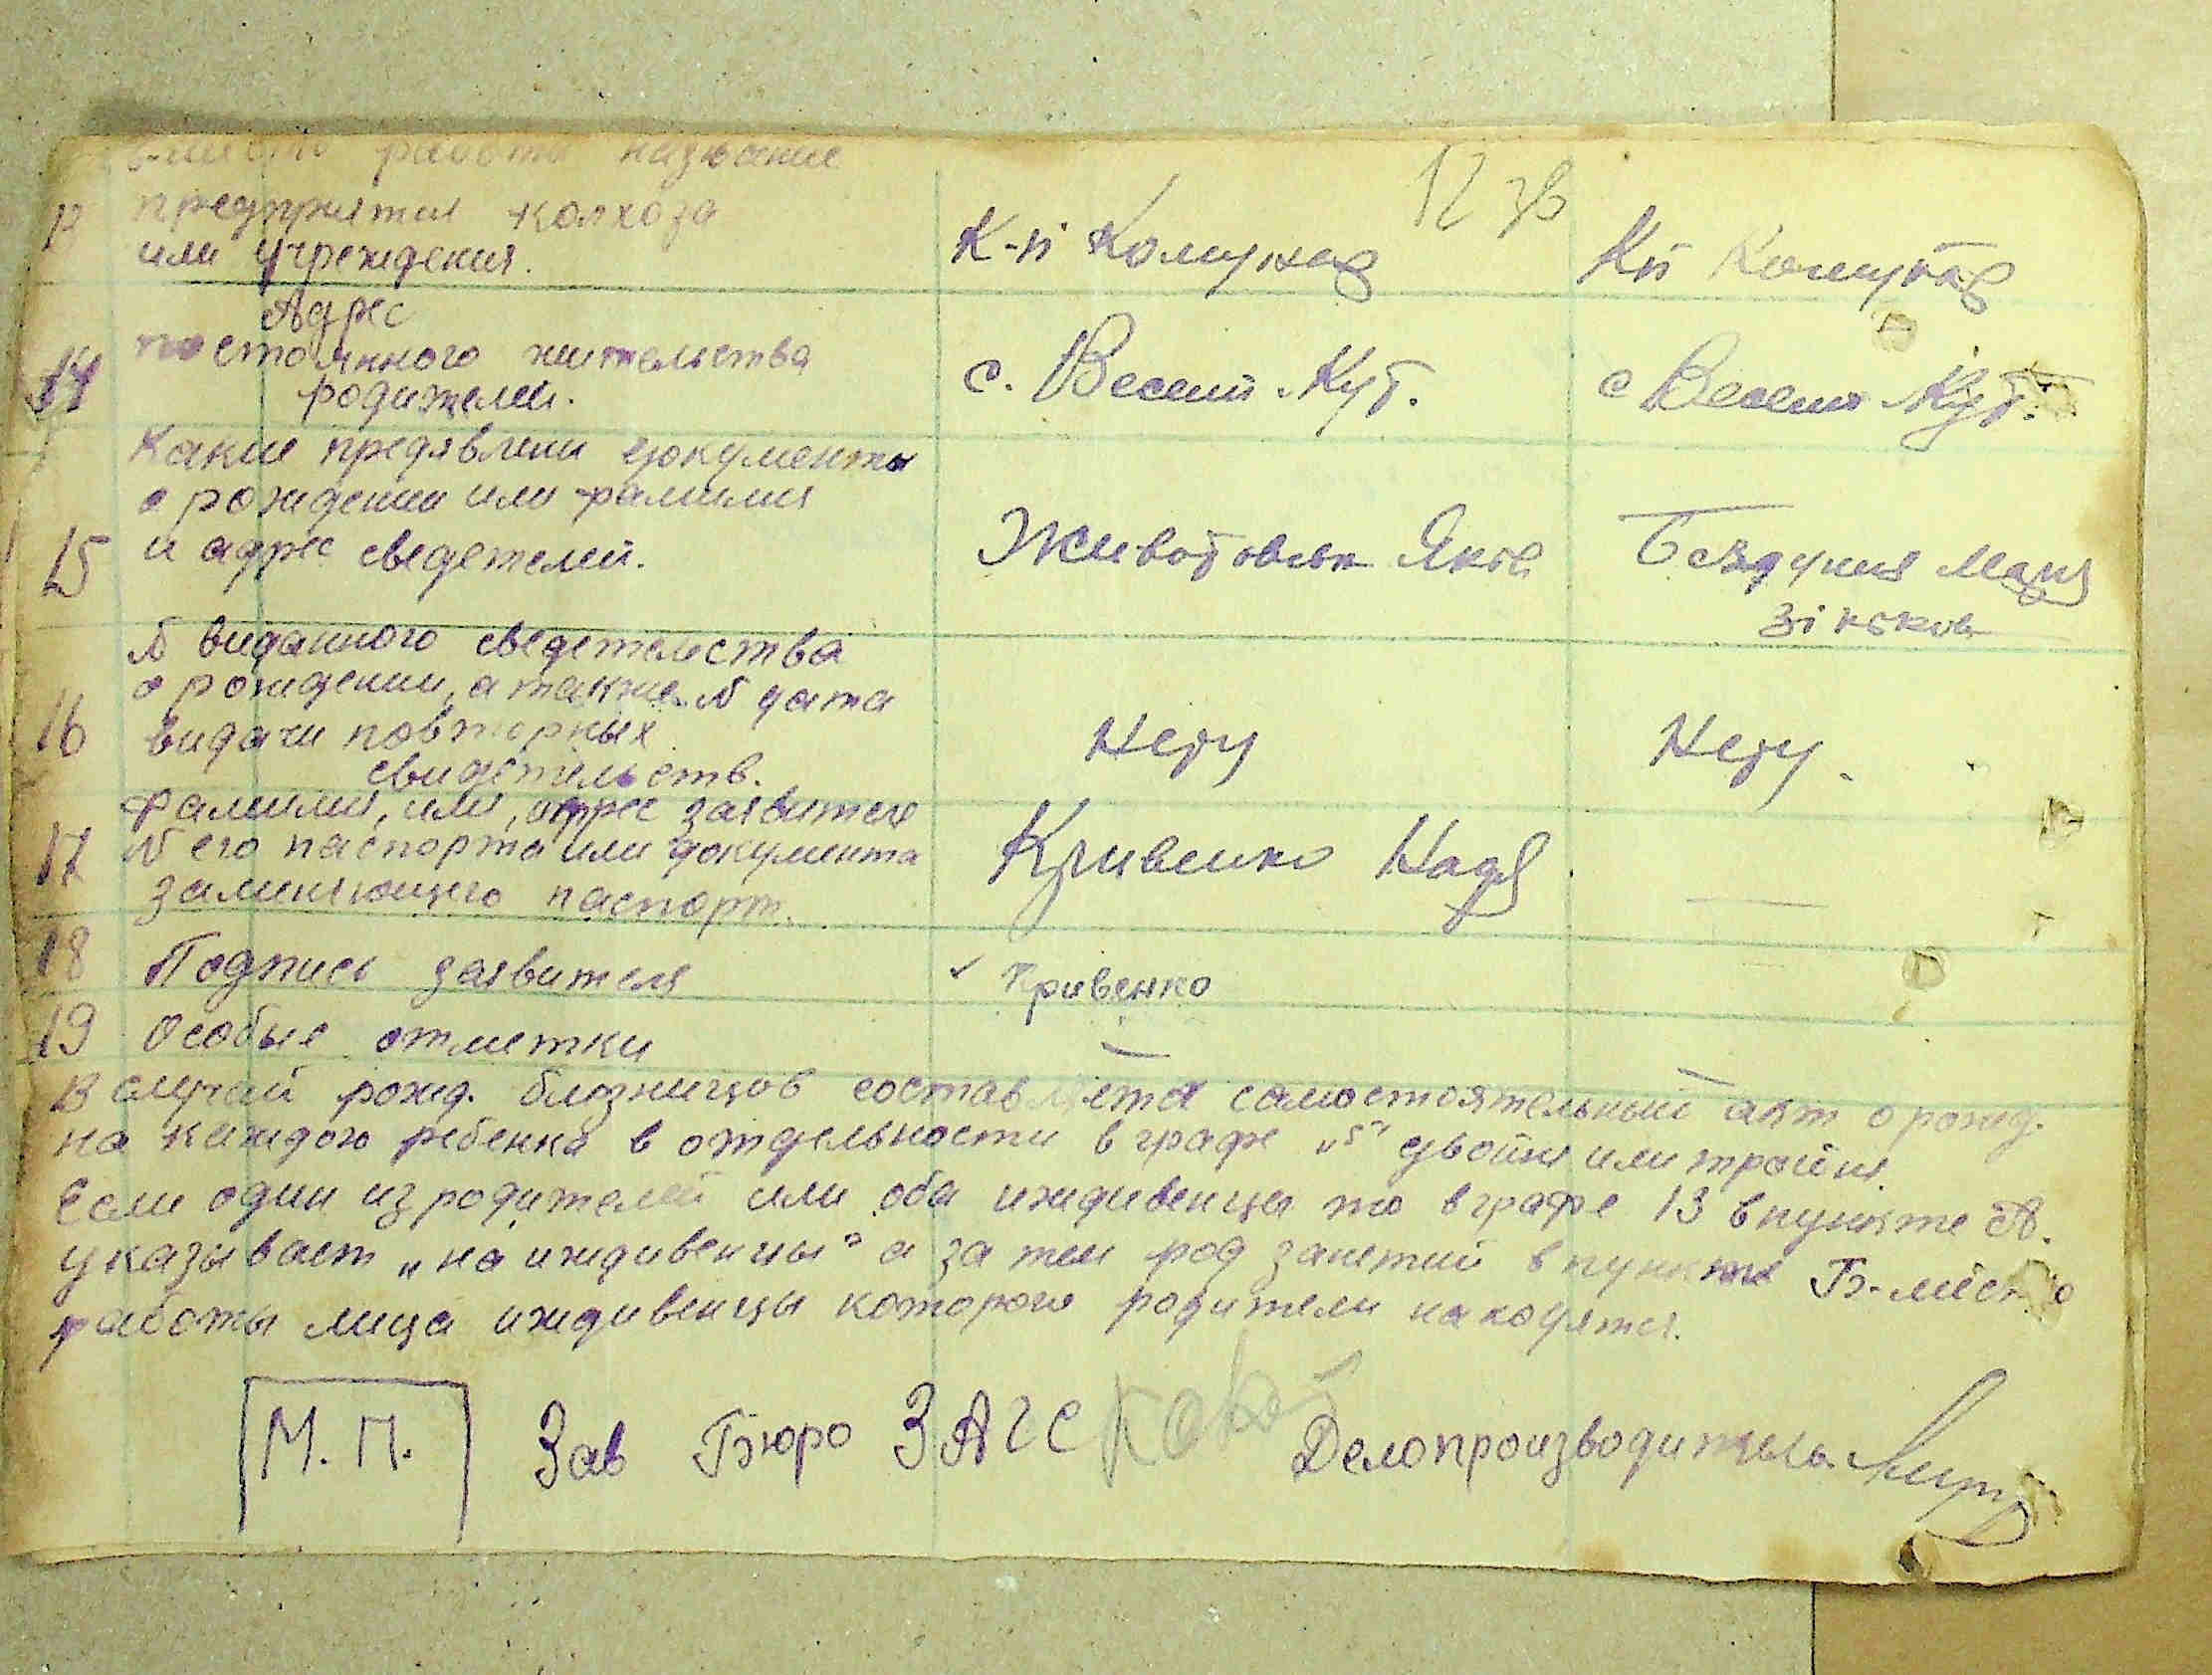 место работы название
12 зв
13 предприятия колхоза
или учреждения.
К-п Комунар
Кп Комунар
Адрес
14 постоянного жительства
родителей.
с. Веселий Кут.
с Веселий Кут.
Какие предявлени документы
о рождении или фамилия
15 и адрес сведетелей.
Животовськ Яков
Бездушня Мария
Зіньков
N виданного сведетельства
о рождении, а также N дата
16 видачи повторных
свидетельств.
Нету
Нету.
Фамилия, имя, адрес заявителя
17 N его паспорта или документа
заменяющего паспорт.
Кривенко Надя
18 Подпись заявителя
✓ Кривенко
19 Особые отметки
В случай рожд. близницов составляется самостоятельный акт о рожд.
на каждого ребенка в отдельности в графе „5" двойня или тройня.
Если один из родителей или оба иждивенцы то в графе 13 в пункте А.
указывает „на иждивенцы" а за тем род занетий в пункте Б-место
работы лица иждивенцы которого родители находятся.
М. П.
Зав Бюро ЗАГС
Делопроизводитель